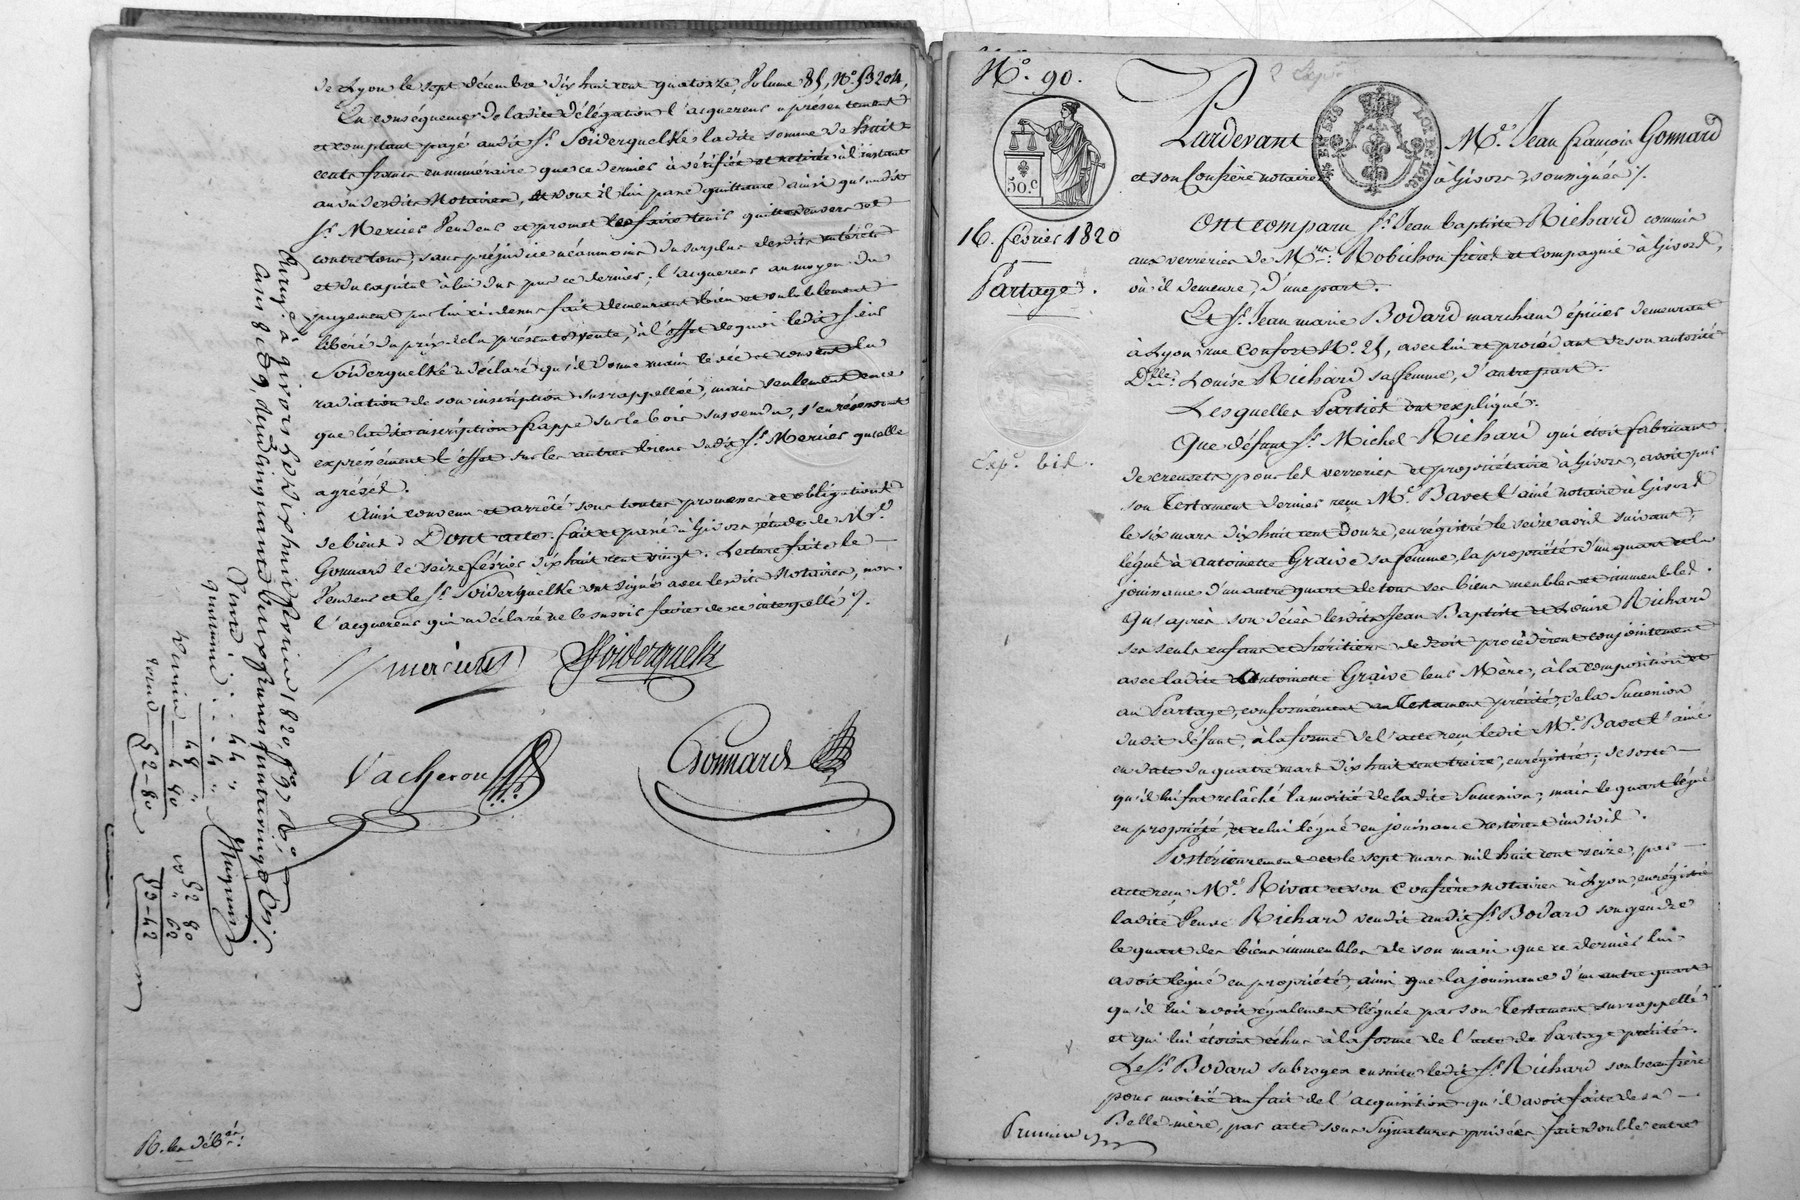 de Lyon le sept décembre dix huit cent quatorze, Volume 85, N.º 53204,
En conséquence de ladite délégation l'acquereur a présentement
et comptant payé audit S.r Soiderquelke ladite somme de huit
cents francs en numéraire que ce dernier a vérifiée et retirée à l'instant
au vu desdits Notaires, dont il lui passe quittance ainsi qu'audit
S.r Mercier Vendeur et promet les faire tenir quittes envers et
contre tous, sans préjudice néanmoins du surplus desdits intérêts
et du capital à lui dus par ce dernier; l'acquereur au moyen du
payement par lui ci-dessus fait demeurant bien et valablement
libéré du prix de la présente vente, à l'effet de quoi ledit Sieur
Soiderquelke a déclaré qu'il donne main levée et consent la
radiation de son inscription susrappellée, mais seulement en ce
que ladite inscription frappe sur le bois susvendu, s'en réservant
expressément l'effet sur les autres biens dudit S.r Mercier qu'elle
agrésed.
Ainsi convenu et arrêté sous toutes promesses et obligations
de biens. Dont acte. fait et passé à Givors, étude de M.e
Gonnard le seize février dix huit cent vingt. Lecture faite le
Vendeur et le S.r Soiderquelke ont signé avec lesdits Notaires, non
l'acquereur qui a déclaré ne le savoir faire de ce interpellé ./.
Mercier Soiderquelk
Vacheron Gonnard
Enreg. à Givors le dix huit février 1820, f.º 97 R.º
cases 8 et 9,
4 "
48 "
4 80
52-80
52 80
" 62
53-42
R. les déb.rs:
N.º 90.
50.c
16. février 1820
Partage.
Exp.on bis.
2 Exp.on
LOI DE 1816
Pardevant M.e Jean françois Gonnard
et son Confrère notaires à Givors, soussignés ./.
Ont comparu S.r Jean baptiste Richard commis
aux verreries de M.rs Robichon frères et compagnie à Givors,
où il demeure, d'une part.
Et S.r Jean marie Bodard marchand épicier demeurant
à Lyon rue Confort N.º 21, avec lui et procédant de son autorité
D.lle Louise Richard sa femme, d'autre part.
Lesquelles Parties ont expliqué:
Que défunt S.r Michel Richard qui étoit fabricant
de creusets pour les verreries et propriétaire à Givors, avoit par
son Testament dernier reçu M.e Bavet l'ainé notaire à Givors
le six mars dix huit cent douze, enrégistré le seize avril suivant,
légué à Antoinette Graive sa femme, la propriété d'un quart et la
jouissance d'un autre quart de tous ses biens meubles et immeubles.
Qu'après son décès lesdits Jean Baptiste et Louise Richard
ses seuls enfans et héritiers de droit procédèrent conjointement
avec ladite Antoinette Graive leur Mère, à la composition et
au Partage, conformément au Testament précité, de la Succession
dudit défunt, à la forme de l'acte reçu ledit M.e Bavet l'ainé
en date du quatre mars dix huit cent treize, enrégistré, de sorte
qu'il lui fut relâché la moitié de ladite Succession, mais le quart légué
en propriété, et celui légué en jouissance restèrent indivis.
Postérieurement et le sept mars mil huit cent seize, par
acte reçu M.e Rivat et son Confrère notaires à Lyon, enrégistré
ladite Veuve Richard vendit audit S.r Bodard son gendre
le quart des biens immeubles de son mari que ce dernier lui
avoit légué en propriété, ainsi que la jouissance d'un autre quart
qu'il lui avoit également léguée par son Testament susrappellé
et qui lui étoient échus à la forme de l'acte de Partage précité.
Le S.r Bodard subrogea ensuite ledit S.r Richard son beaufrère
pour moitié au fait de l'acquisition qu'il avoit faite de sa
Belle-mère, par acte sous Signatures privées fait double entre
Premier